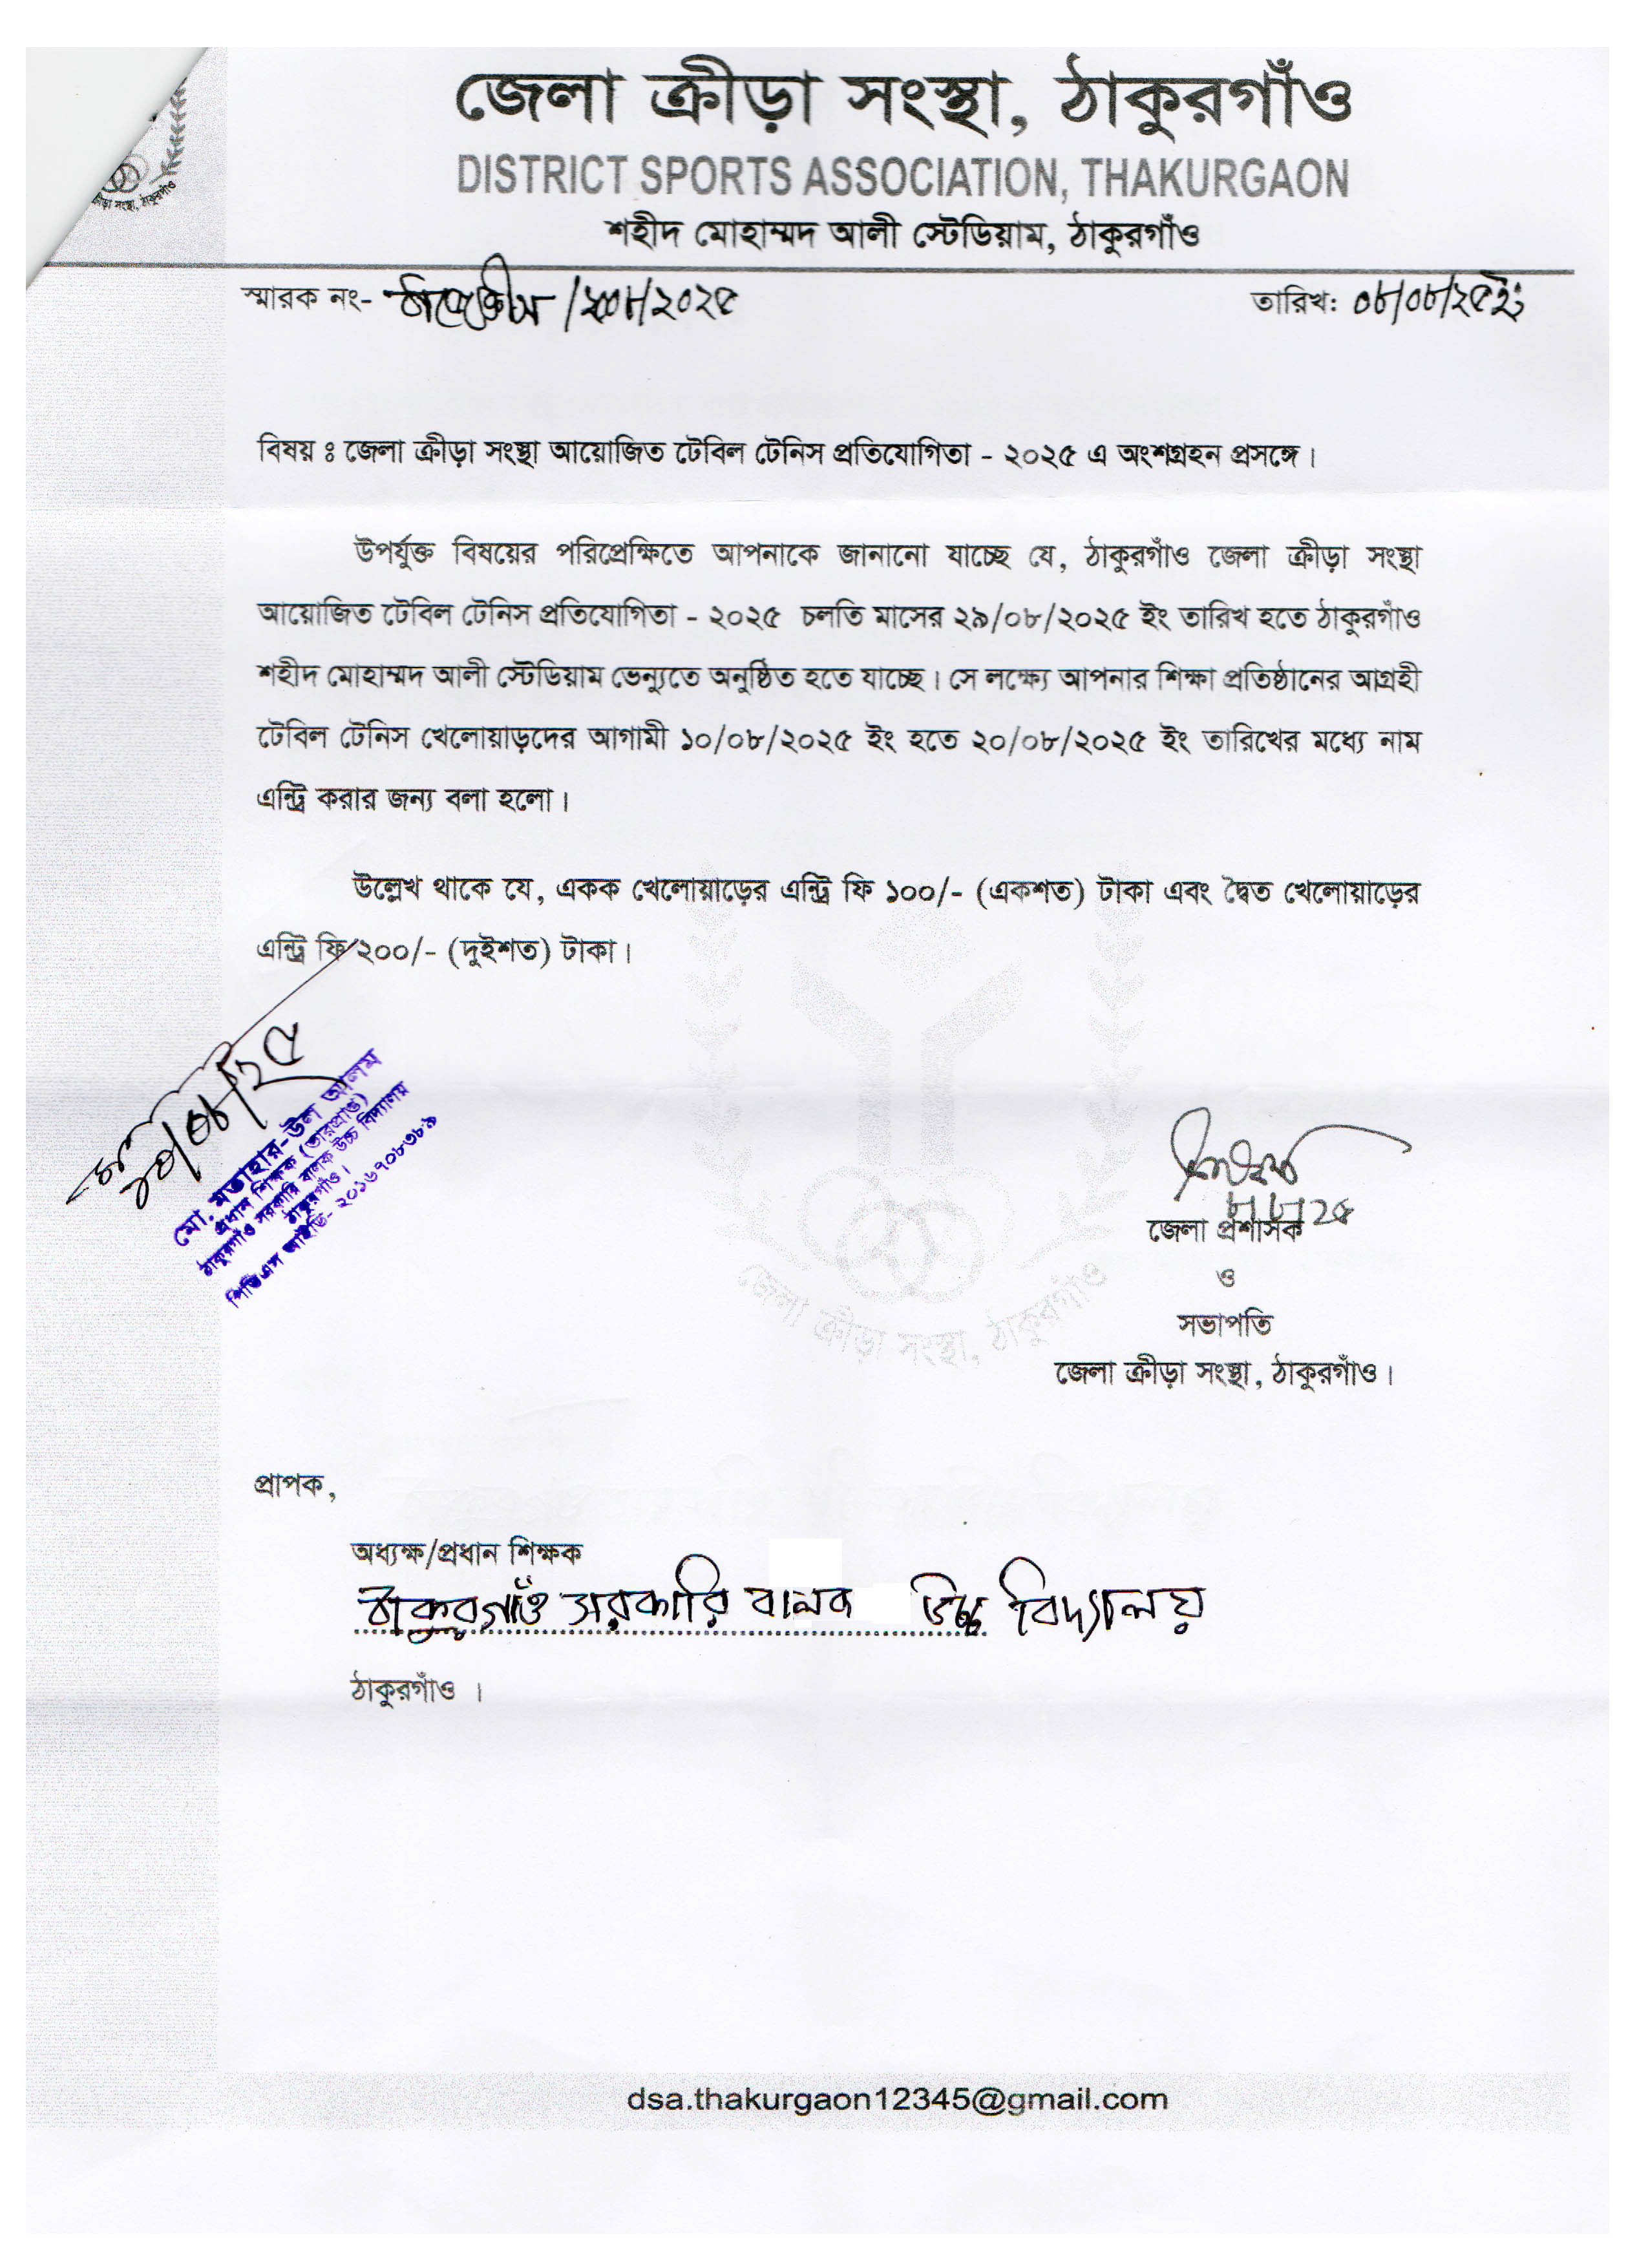 জেলা ক্রীড়া সংস্থা, ঠাকুরগাঁও
DISTRICT SPORTS ASSOCIATION, THAKURGAON
শহীদ মোহাম্মদ আলী স্টেডিয়াম, ঠাকুরগাঁও
স্মারক নং- /২০২৫
তারিখ: ০৮/০৮/২৫ইং
বিষয় ঃ জেলা ক্রীড়া সংস্থা আয়োজিত টেবিল টেনিস প্রতিযোগিতা - ২০২৫ এ অংশগ্রহন প্রসঙ্গে।
উপর্যুক্ত বিষয়ের পরিপ্রেক্ষিতে আপনাকে জানানো যাচ্ছে যে, ঠাকুরগাঁও জেলা ক্রীড়া সংস্থা
আয়োজিত টেবিল টেনিস প্রতিযোগিতা - ২০২৫ চলতি মাসের ২৯/০৮/২০২৫ ইং তারিখ হতে ঠাকুরগাঁও
শহীদ মোহাম্মদ আলী স্টেডিয়াম ভেন্যুতে অনুষ্ঠিত হতে যাচ্ছে। সে লক্ষ্যে আপনার শিক্ষা প্রতিষ্ঠানের আগ্রহী
টেবিল টেনিস খেলোয়াড়দের আগামী ১০/০৮/২০২৫ ইং হতে ২০/০৮/২০২৫ ইং তারিখের মধ্যে নাম
এন্ট্রি করার জন্য বলা হলো।
উল্লেখ থাকে যে, একক খেলোয়াড়ের এন্ট্রি ফি ১০০/- (একশত) টাকা এবং দ্বৈত খেলোয়াড়ের
এন্ট্রি ফি ২০০/- (দুইশত) টাকা।
১০/০৮/২৫
মো. মতাহার-উল আলম
প্রধান শিক্ষক (ভারপ্রাপ্ত)
ঠাকুরগাঁও সরকারি বালক উচ্চ বিদ্যালয়
ঠাকুরগাঁও।
পিডিএস আইডি- ২০১৬৭০৮৩৮৯
৮/৮/২৫
জেলা প্রশাসক
ও
সভাপতি
জেলা ক্রীড়া সংস্থা, ঠাকুরগাঁও।
জেলা ক্রীড়া সংস্থা, ঠাকুরগাঁও
প্রাপক,
অধ্যক্ষ/প্রধান শিক্ষক
ঠাকুরগাঁও সরকারি বালক উচ্চ বিদ্যালয়
ঠাকুরগাঁও ।
dsa.thakurgaon12345@gmail.com